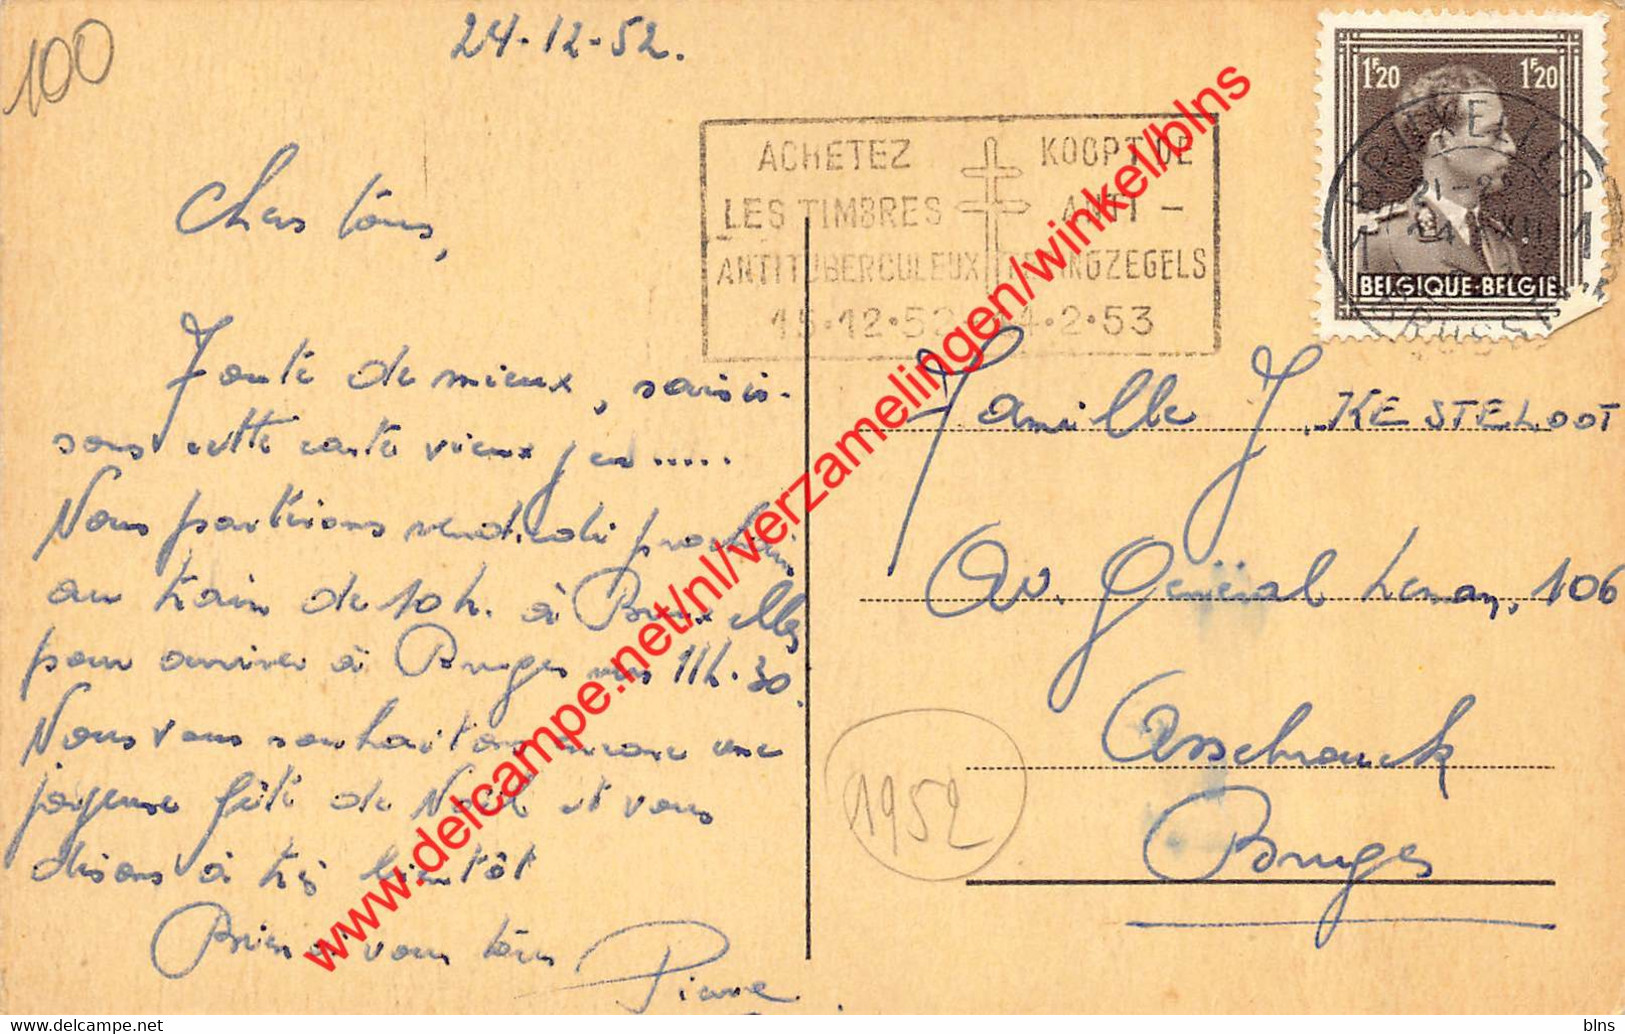 100
24-12-52.
ACHETEZ
LES TIMBRES
ANTITUBERCULEUX
KOOPT DE
ANTI-
TERINGZEGELS
15·12·52 - 14·2·53
1F20 1F20
BELGIQUE·BELGIE
BRUXELLES
1 1
BRUSSEL
Chers tous,
Faute de mieux, saisis-
sons cette carte vieux jeu.....
Nous partirons vendredi prochain
au train de 10h. à Bruxelles
pour arriver à Bruges vers 11h.30
Nous vous souhaitons encore une
joyeuse fête de Noël et vous
disons à très bientôt
Bien à vous tous
Pierre.
Famille J. KESTELOOT
Av. Général Leman, 106
Assebrouck
Bruges
1952
www.delcampe.net/nl/verzamelingen/winkel/blns
delcampe.net
blns